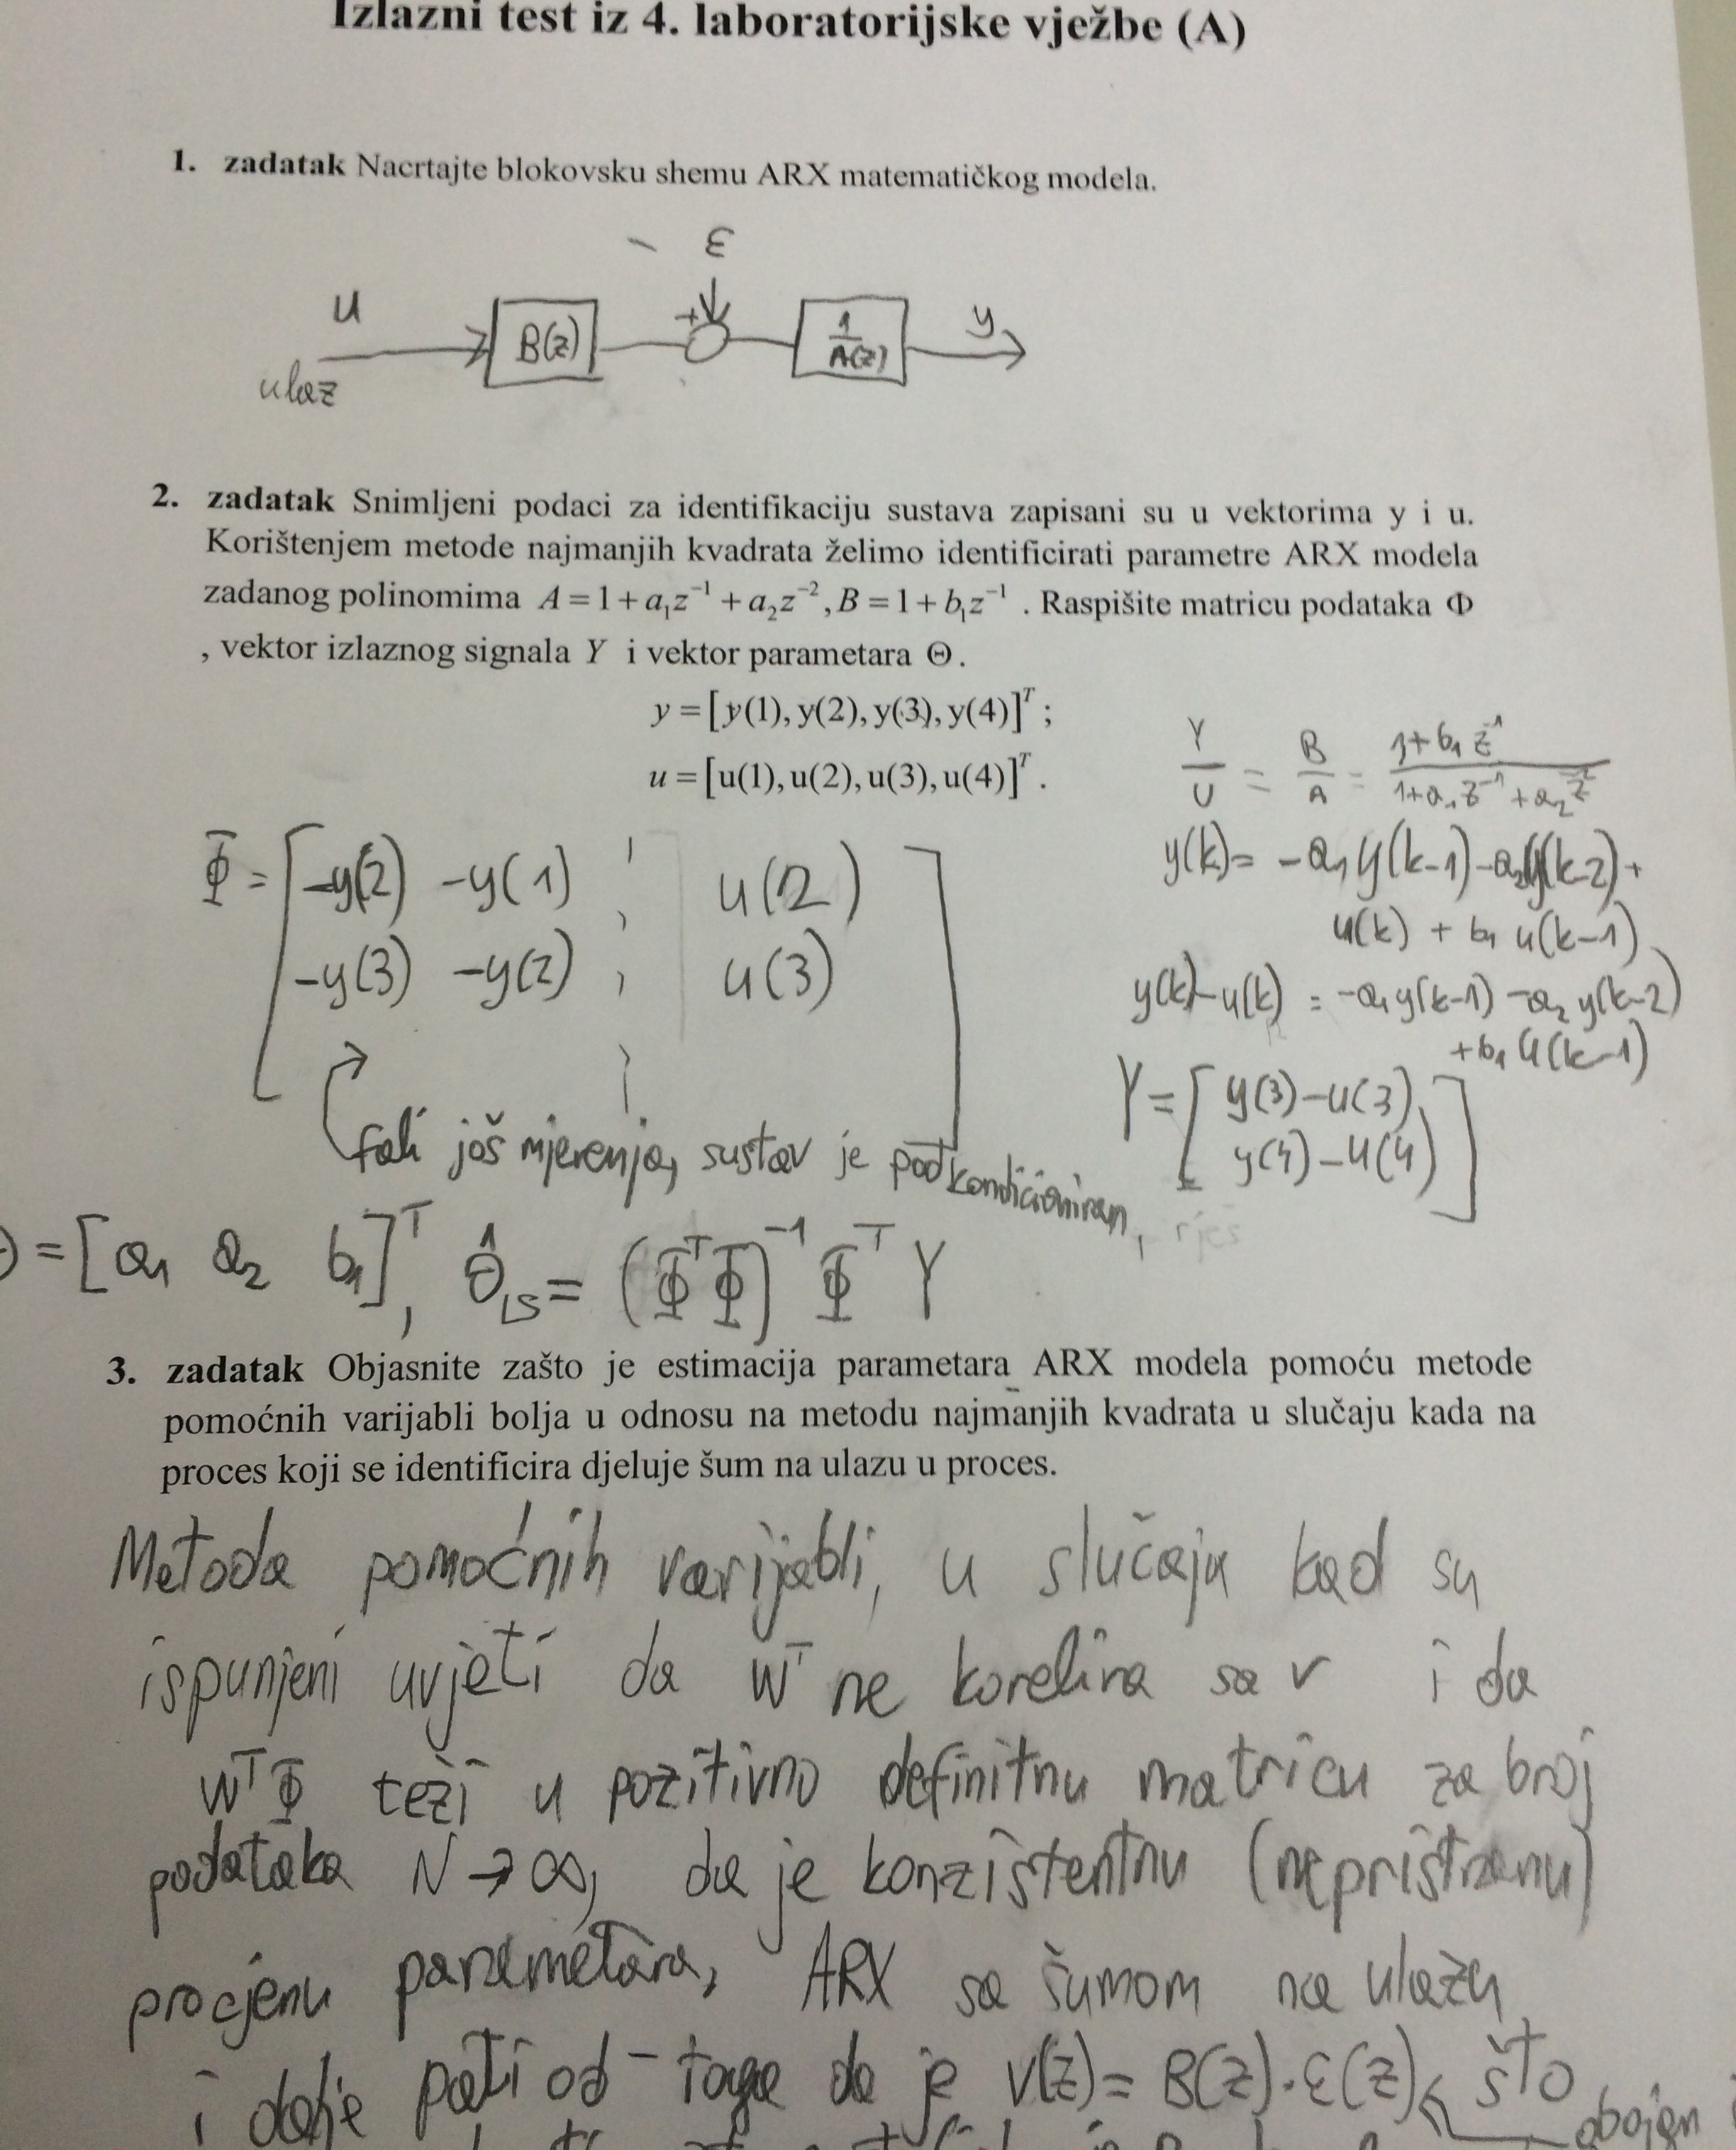 Izlazni test iz 4. laboratorijske vježbe (A)
1. zadatak Nacrtajte blokovsku shemu ARX matematičkog modela.
ε
u
+
B(z)
1/A(z)
y
ulaz
2. zadatak Snimljeni podaci za identifikaciju sustava zapisani su u vektorima y i u.
Korištenjem metode najmanjih kvadrata želimo identificirati parametre ARX modela
zadanog polinomima A = 1 + a₁z⁻¹ + a₂z⁻², B = 1 + b₁z⁻¹ . Raspišite matricu podataka Φ
, vektor izlaznog signala Y i vektor parametara Θ.
y = [y(1), y(2), y(3), y(4)]ᵀ ;
u = [u(1), u(2), u(3), u(4)]ᵀ .
Y/U = B/A = (1+b₁z⁻¹)/(1+a₁z⁻¹+a₂z⁻²)
y(k) = -a₁y(k-1)-a₂y(k-2)+
u(k) + b₁ u(k-1)
y(k)-u(k) = -a₁y(k-1) -a₂ y(k-2)
+b₁ u(k-1)
Y = [ y(3)-u(3)
y(4)-u(4) ]
Φ = [ -y(2) -y(1) ¦ u(2)
-y(3) -y(2) ¦ u(3) ]
fali još mjerenja, sustav je podkondicioniran,
= [a₁ a₂ b₁]ᵀ, Θ̂LS = (ΦᵀΦ)⁻¹ Φᵀ Y
3. zadatak Objasnite zašto je estimacija parametara ARX modela pomoću metode
pomoćnih varijabli bolja u odnosu na metodu najmanjih kvadrata u slučaju kada na
proces koji se identificira djeluje šum na ulazu u proces.
Metoda pomoćnih varijabli, u slučaju kad su
ispunjeni uvjeti da Wᵀ ne korelira sa v i da
WᵀΦ teži u pozitivno definitnu matricu za broj
podataka N → ∞, daje konzistentnu (nepristranu)
procjenu parametara, ARX sa šumom na ulazu
i dalje pati od toga da je V(z) = B(z)·ε(z), što
obojen